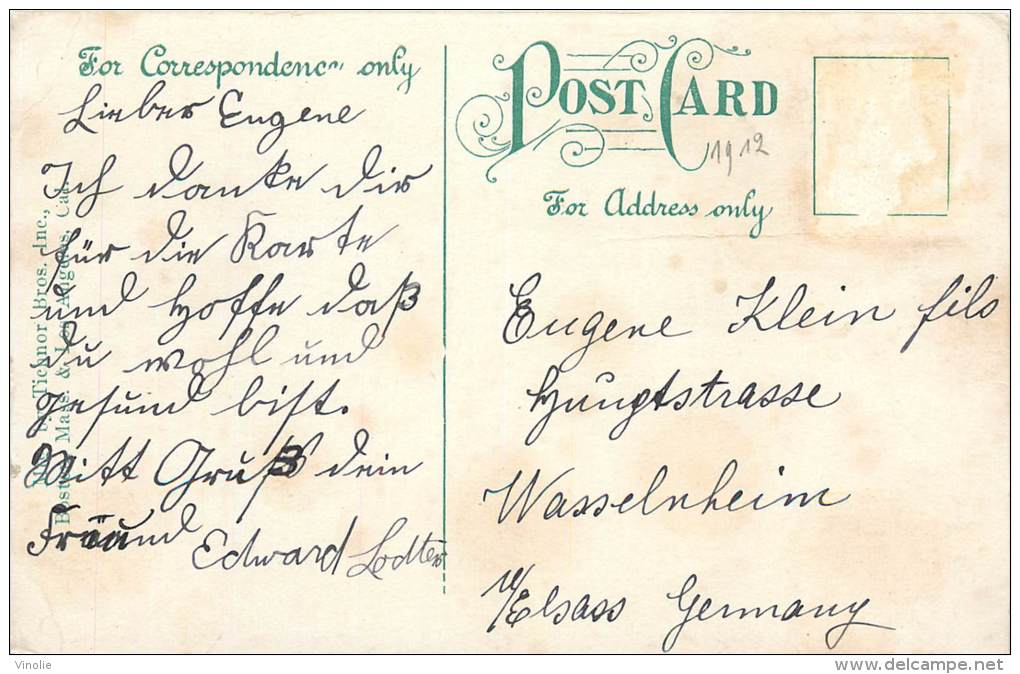 For Correspondence only
Lieber Eugene
Ich danke dir
für die Karte
und hoffe daß
du wohl und
gesund bist.
Mitt Gruß dein
Fräund
Edward Lodter
by Tichnor Bros. Inc.,
Boston, Mass. & Los Angeles, Cal.
POST CARD
1912
For Address only
Eugene Klein fils
Hauptstrasse
Wasselnheim
Elsass Germany
Vinolie
delcampe.net